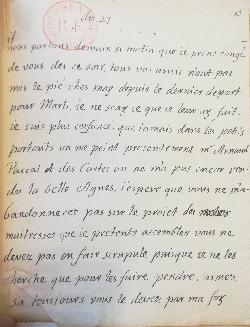 du 27
nous partons demain si matin que je prens congé
de vous des ce soir, tous vos amis n'ont pas
mis le pié chez moy depuis le dernier depart
pour Marli, je ne scay ce que je leur ay fait.
je suis plus enfoncé que jamais dans la
portraits un ne peint presentement mr Arnaud
Pascal et des Cartes on ne m'a pas encor ren-
du la belle Agnes, j'espere que vous ne m'a-
bandonnerez pas sur le projet des
maitresses que je pretens assembler vous ne
devez pas en faire scrupule puisque je ne les
cherche que pour les faire pendre, aimez
vous le devez par ma foy